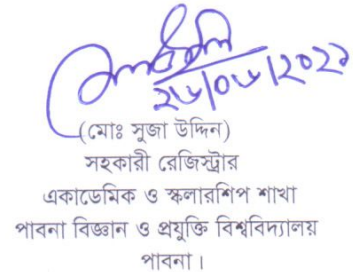 ২৬/০৬/২০২১
(মোঃ সুজা উদ্দিন)
সহকারী রেজিস্ট্রার
একাডেমিক ও স্কলারশিপ শাখা
পাবনা বিজ্ঞান ও প্রযুক্তি বিশ্ববিদ্যালয়
পাবনা।